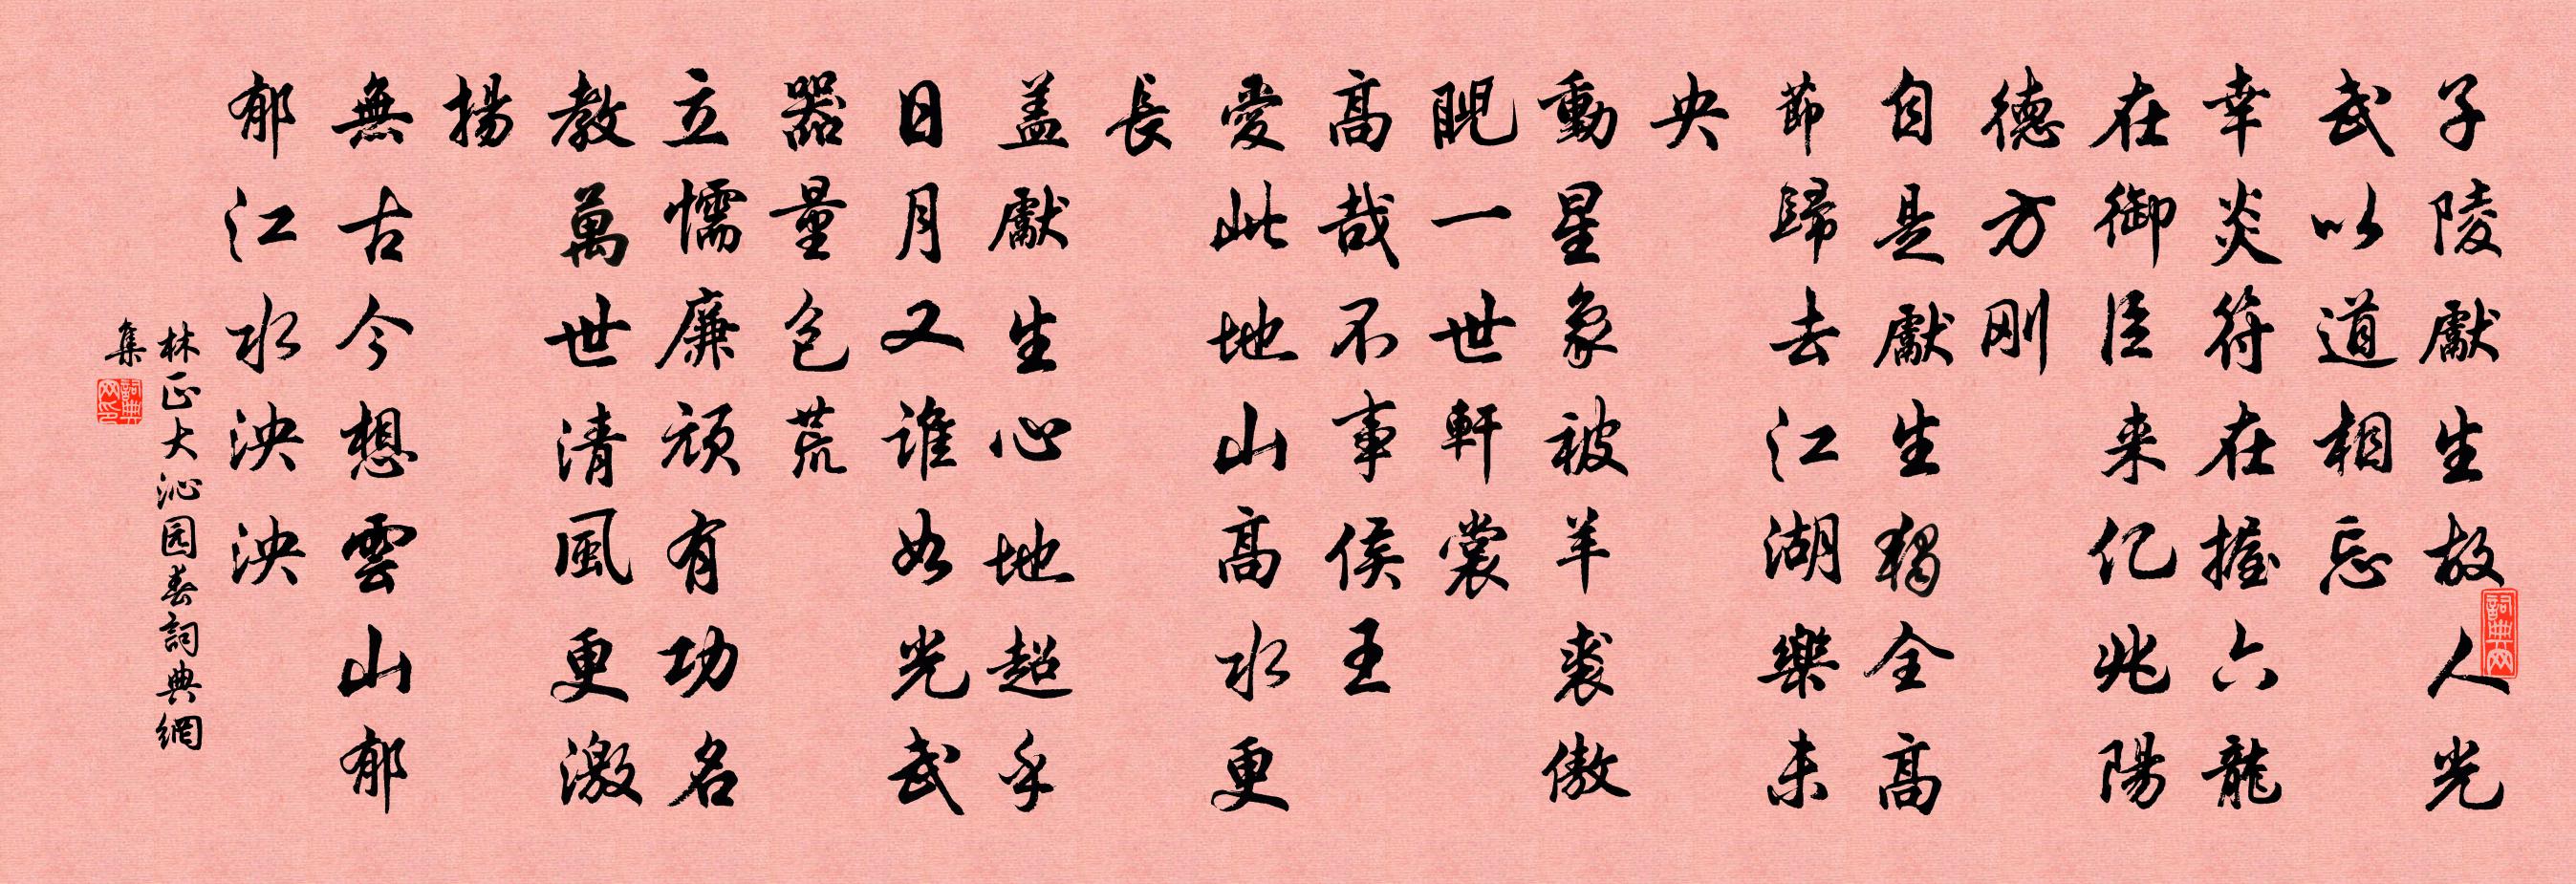 子陵獻生故人光
武以道相忘
幸炎符在握六龍
在御臣来亿兆陽
德方刚
自是獻生獨全高
節歸去江湖樂未
央
動星象被羊裘傲
睨一世軒裳
高哉不事侯王
愛此地山高水更
長
盖獻生心地超乎
日月又誰如光武
器量包荒
立懦廉頑有功名
教萬世清風更激
揚
無古今想雲山郁
郁江水泱泱
林正大沁园春詞典網
集
詞典网
詞典网印